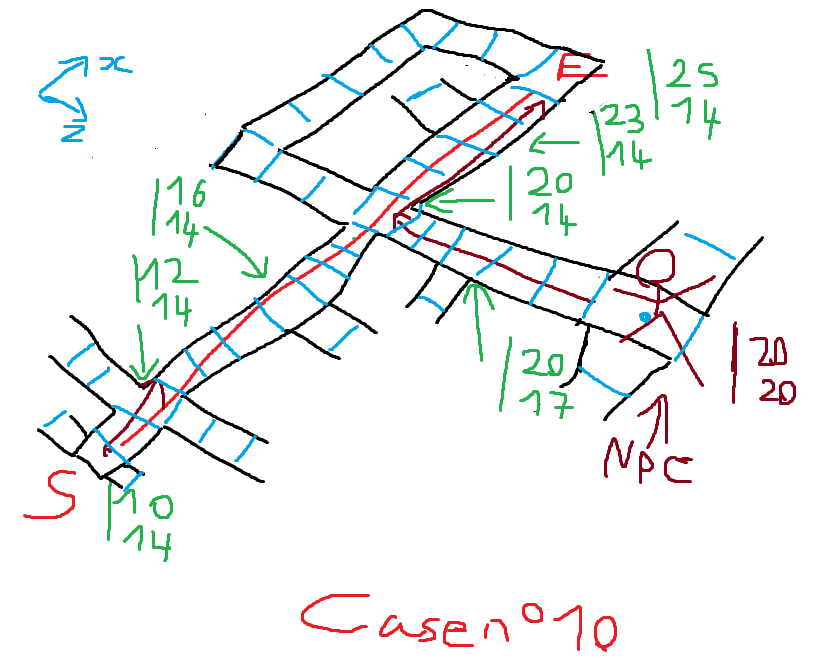 x
Z
E
25
14
23
14
20
14
16
14
12
14
20
17
20
20
NPC
S
10
14
Case n°10